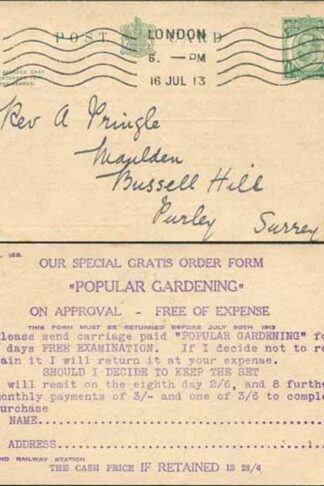 LONDON
POST CARD
6. — PM
16 JUL 13
Rev A Pringle
Maulden
Bussell Hill
Purley Surrey
OUR SPECIAL GRATIS ORDER FORM
"POPULAR GARDENING"
ON APPROVAL - FREE OF EXPENSE
THIS FORM MUST BE RETURNED BEFORE JULY 30TH 1913
lease send carriage paid "POPULAR GARDENING" fo
days FREE EXAMINATION. If I decide not to re
ain it I will return it at your expense.
SHOULD I DECIDE TO KEEP THE SET
will remit on the eighth day 2/6, and 8 further
onthly payments of 3/- and one of 3/6 to comple
urchase
NAME
ADDRESS
ND RAILWAY STATION
THE CASH PRICE IF RETAINED IS 28/6